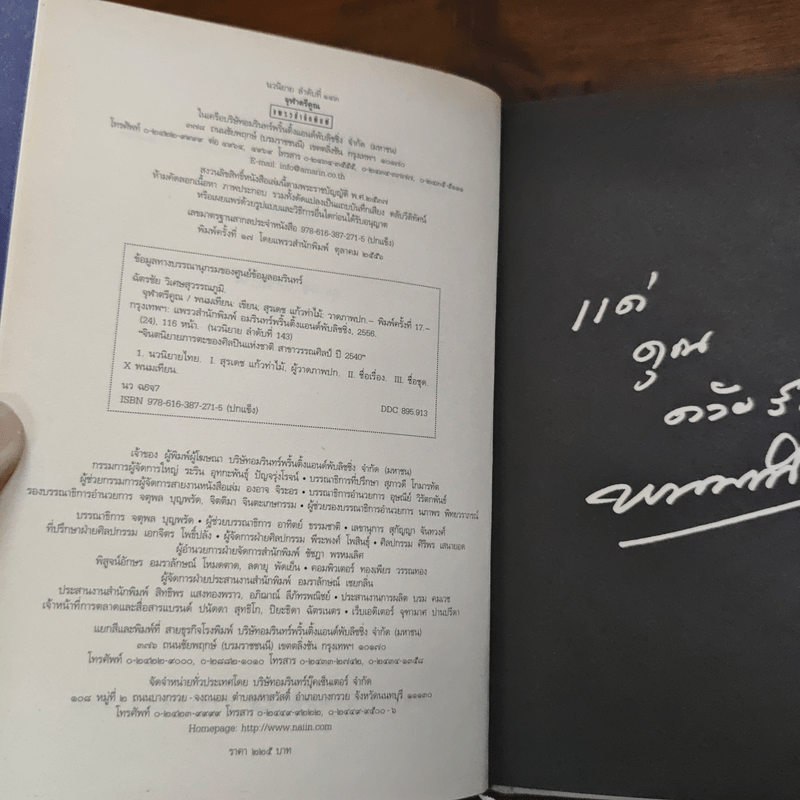 นวนิยาย ลำดับที่ ๑๔๓
จุฬาตรีคูณ
แพรวสำนักพิมพ์
ในเครือบริษัทอมรินทร์พริ้นติ้งแอนด์พับลิชชิ่ง จำกัด (มหาชน)
๓๗๘ ถนนชัยพฤกษ์ (บรมราชชนนี) เขตตลิ่งชัน กรุงเทพฯ ๑๐๑๗๐
โทรศัพท์ ๐-๒๔๒๒-๙๙๙๙ ต่อ ๔๙๖๔, ๔๙๖๙ โทรสาร ๐-๒๔๓๔-๓๕๕๕, ๐-๒๔๓๔-๓๗๗๗, ๐-๒๔๓๕-๕๑๑๑
E-mail: info@amarin.co.th
สงวนลิขสิทธิ์หนังสือเล่มนี้ตามพระราชบัญญัติ พ.ศ.๒๕๓๗
ห้ามคัดลอกเนื้อหา ภาพประกอบ รวมทั้งดัดแปลงเป็นแถบบันทึกเสียง ตลับวีดิทัศน์
หรือเผยแพร่ด้วยรูปแบบและวิธีการอื่นใดก่อนได้รับอนุญาต
เลขมาตรฐานสากลประจำหนังสือ 978-616-387-271-5 (ปกแข็ง)
พิมพ์ครั้งที่ ๑๗ โดยแพรวสำนักพิมพ์ ตุลาคม ๒๕๕๖
ข้อมูลทางบรรณานุกรมของศูนย์ข้อมูลอมรินทร์
ฉัตรชัย วิเศษสุวรรณภูมิ.
จุฬาตรีคูณ / พนมเทียน: เขียน; สุรเดช แก้วท่าไม้: วาดภาพปก.-- พิมพ์ครั้งที่ 17.--
กรุงเทพฯ: แพรวสำนักพิมพ์ อมรินทร์พริ้นติ้งแอนด์พับลิชชิ่ง, 2556.
(24), 116 หน้า. (นวนิยาย ลำดับที่ 143)
"จินตนิยายภารตะของศิลปินแห่งชาติ สาขาวรรณศิลป์ ปี 2540"
1. นวนิยายไทย. I. สุรเดช แก้วท่าไม้, ผู้วาดภาพปก. II. ชื่อเรื่อง. III. ชื่อชุด.
X พนมเทียน.
นว ฉ6จ7
ISBN 978-616-387-271-5 (ปกแข็ง) DDC 895.913
เจ้าของ ผู้พิมพ์ผู้โฆษณา บริษัทอมรินทร์พริ้นติ้งแอนด์พับลิชชิ่ง จำกัด (มหาชน)
กรรมการผู้จัดการใหญ่ ระริน อุทกะพันธุ์ ปัญจรุ่งโรจน์ • บรรณาธิการที่ปรึกษา สุภาวดี โกมารทัต
ผู้ช่วยกรรมการผู้จัดการสายงานหนังสือเล่ม องอาจ จิระอร • บรรณาธิการอำนวยการ อุษณีย์ วิรัตกพันธ์
รองบรรณาธิการอำนวยการ จตุพล บุญพรัด, จิตติมา จินตะเกษกรรม • ผู้ช่วยรองบรรณาธิการอำนวยการ นภาพร พิทยวราภรณ์
บรรณาธิการ จตุพล บุญพรัด • ผู้ช่วยบรรณาธิการ อาทิตย์ ธรรมชาติ • เลขานุการ สุกัญญา จันทวงศ์
ที่ปรึกษาฝ่ายศิลปกรรม เอกจิตร โพธิ์ปลั่ง • ผู้จัดการฝ่ายศิลปกรรม พีระพงศ์ โพสินธุ์ • ศิลปกรรม ศิริพร เสนายอด
ผู้อำนวยการฝ่ายจัดการสำนักพิมพ์ ชัชฎา พรหมเลิศ
พิสูจน์อักษร อมราลักษณ์ โหมดตาด, ลดายุ พัดเย็น • คอมพิวเตอร์ ทองเพียร วรรณทอง
ผู้จัดการฝ่ายประสานงานสำนักพิมพ์ อมราลักษณ์ เชยกลิ่น
ประสานงานสำนักพิมพ์ สิทธิพร แสงทองพราว, อภิฌาณ์ ลีภัทรพณิชย์ • ประสานงานการผลิต บรม คมเวช
เจ้าหน้าที่การตลาดและสื่อสารแบรนด์ ปนัดดา สุทธิโก, ปิยะธิดา ฉัตรเนตร • เว็บเอดิเตอร์ จุฑามาศ ปานปรีดา
แยกสีและพิมพ์ที่ สายธุรกิจโรงพิมพ์ บริษัทอมรินทร์พริ้นติ้งแอนด์พับลิชชิ่ง จำกัด (มหาชน)
๓๗๖ ถนนชัยพฤกษ์ (บรมราชชนนี) เขตตลิ่งชัน กรุงเทพฯ ๑๐๑๗๐
โทรศัพท์ ๐-๒๔๒๒-๙๐๐๐, ๐-๒๘๘๒-๑๐๑๐ โทรสาร ๐-๒๔๓๓-๒๗๔๒, ๐-๒๔๓๔-๑๓๘๕
จัดจำหน่ายทั่วประเทศโดย บริษัทอมรินทร์บุ๊คเซ็นเตอร์ จำกัด
๑๐๘ หมู่ที่ ๒ ถนนบางกรวย - จงถนอม ตำบลมหาสวัสดิ์ อำเภอบางกรวย จังหวัดนนทบุรี ๑๑๑๓๐
โทรศัพท์ ๐-๒๔๒๓-๙๙๙๙ โทรสาร ๐-๒๔๔๙-๙๒๒๒, ๐-๒๔๔๙-๙๕๐๐-๖
Homepage: http://www.naiin.com
ราคา ๒๒๕ บาท
แด่
คุณ